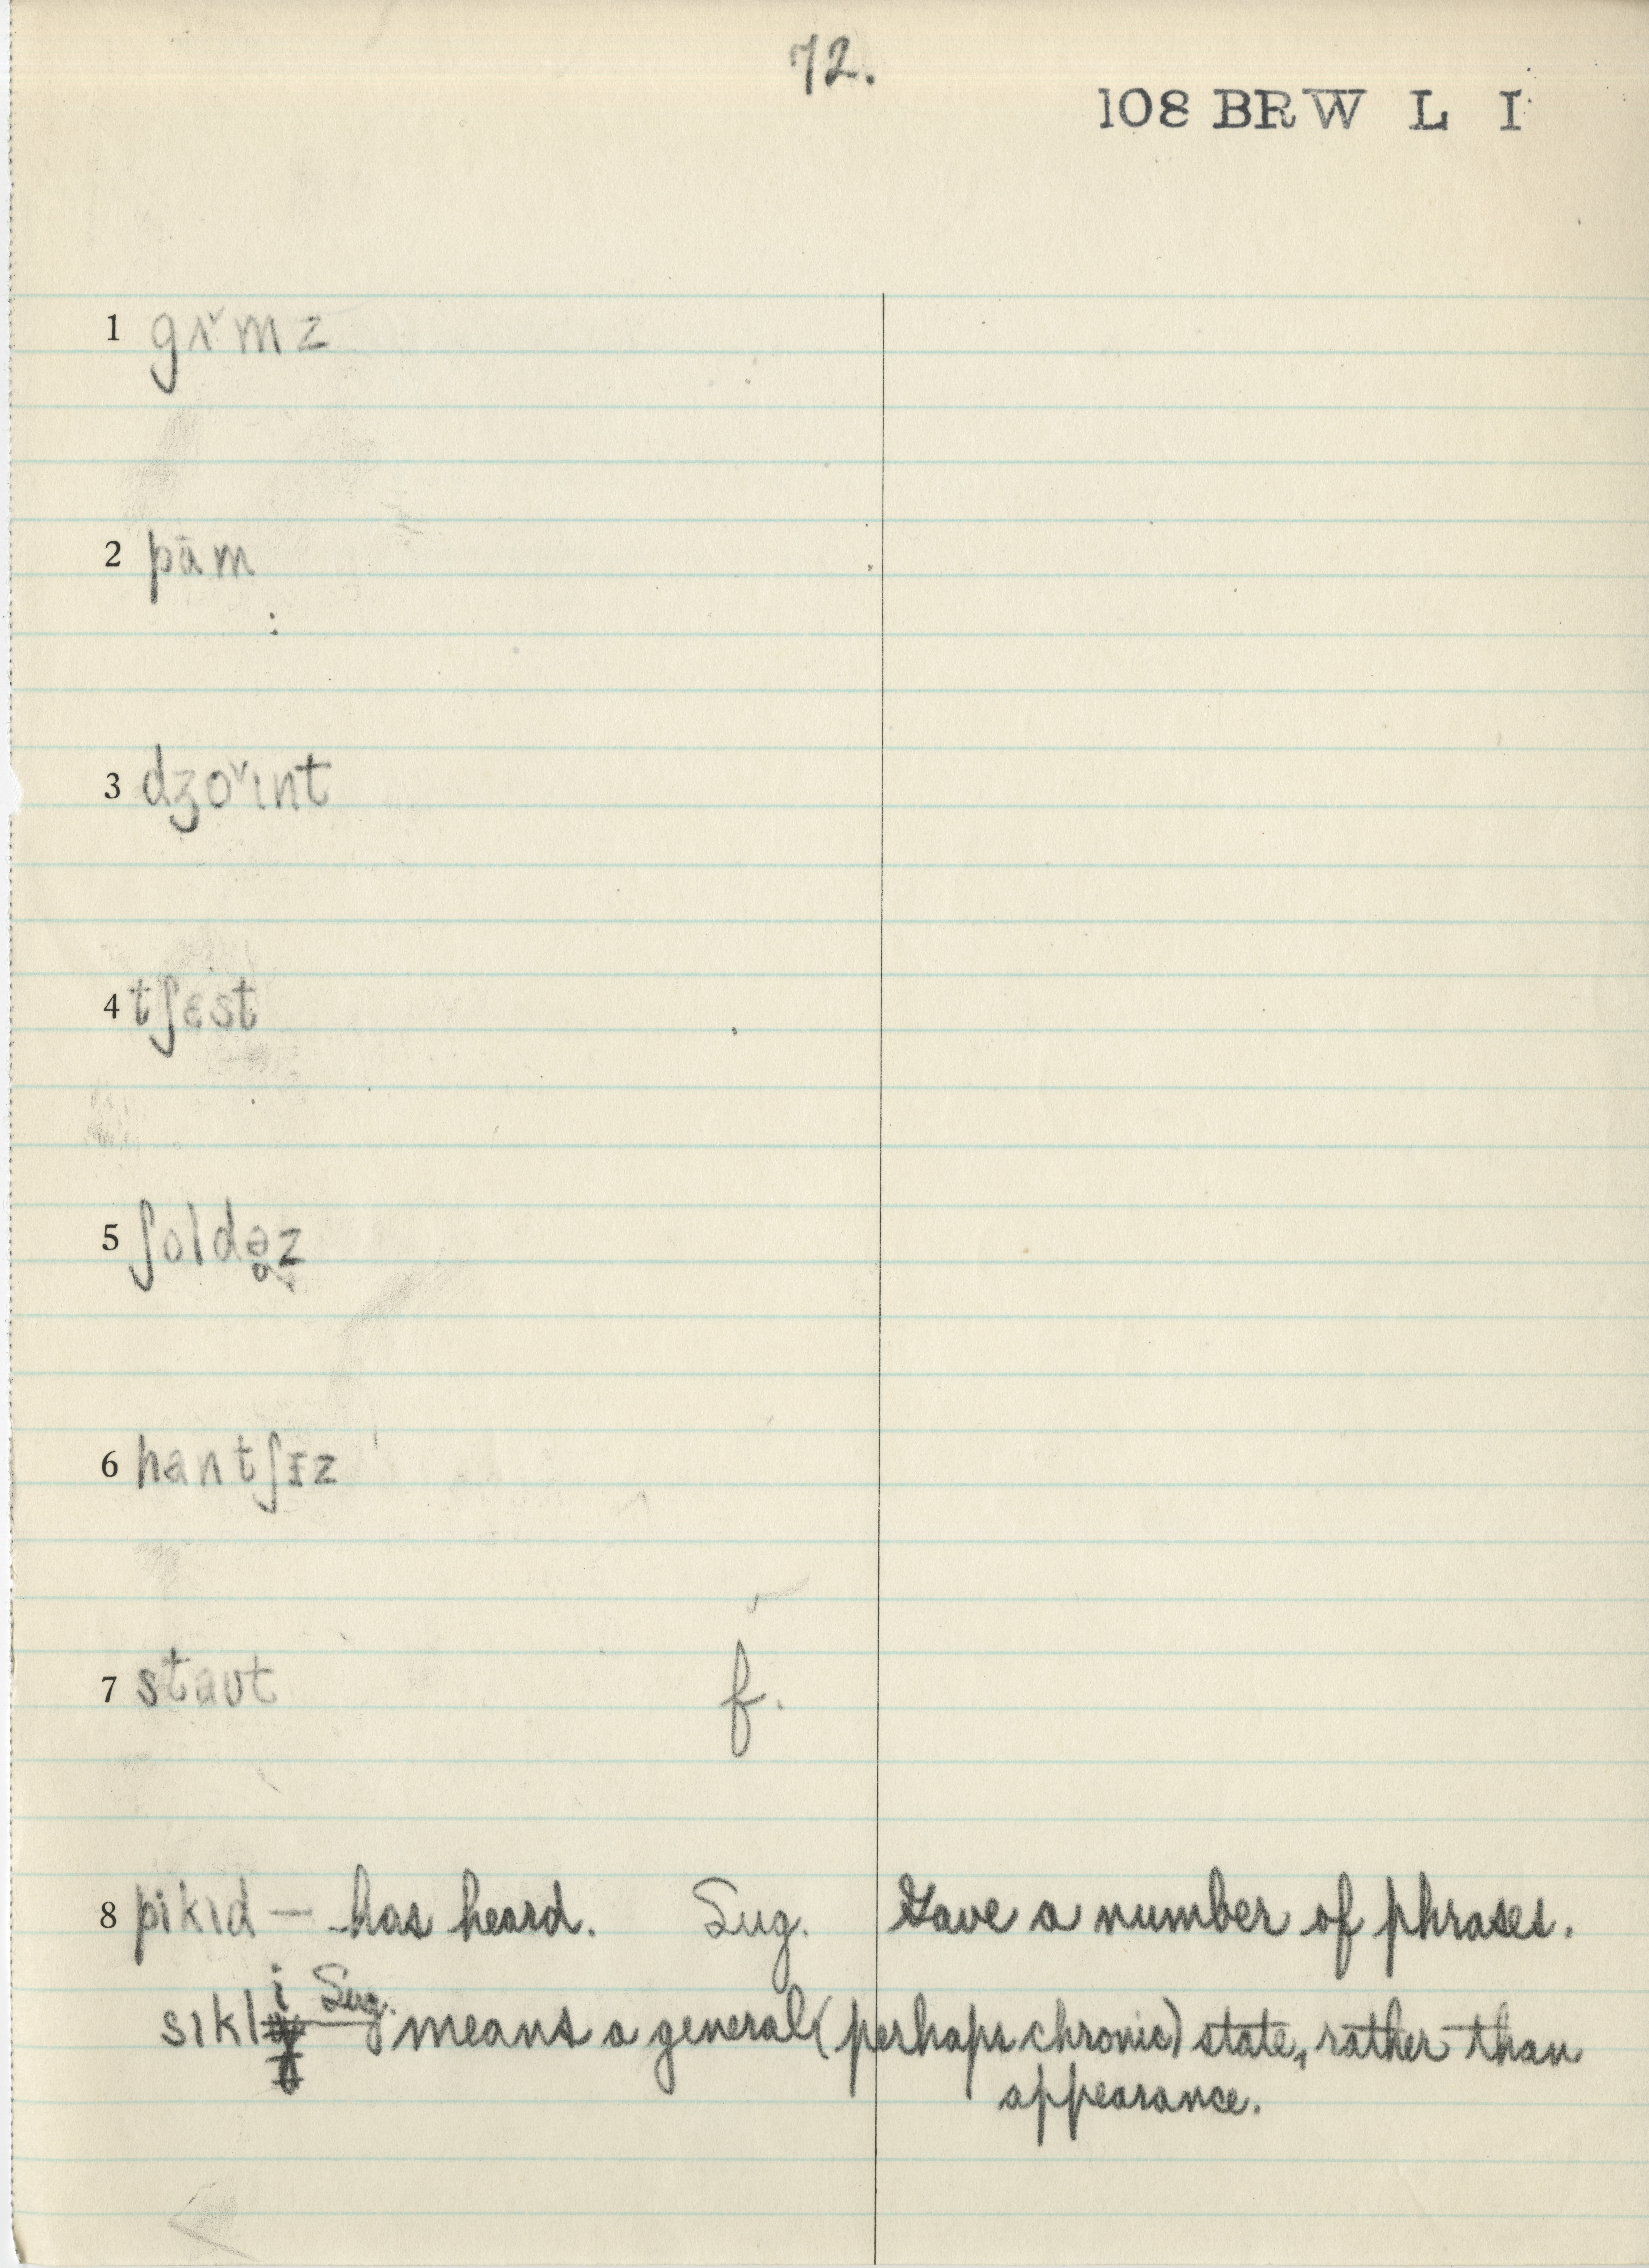 72.
108 BRW L I
1 gɤ̌mz
2 pām
3 dʒoˇɪnt
4 tʃɛst
5 ʃoldə̥z
6 hantʃɪz
7 staʊt f.
8 pikɪd — has heard. Sug. Gave a number of phrases.
sɪkli Sug. means a general (perhaps chronic) state, rather than
appearance.